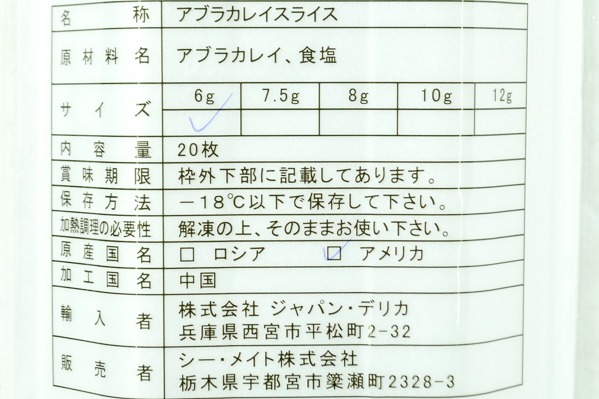 名称 アブラカレイスライス
原材料名 アブラカレイ、食塩
サイズ 6g 7.5g 8g 10g 12g
内容量 20枚
賞味期限 枠外下部に記載してあります。
保存方法 －18℃以下で保存して下さい。
加熱調理の必要性 解凍の上、そのままお使い下さい。
原産国名 □ ロシア ☑ アメリカ
加工国名 中国
輸入者 株式会社 ジャパン・デリカ
兵庫県西宮市平松町2-32
販売者 シー・メイト株式会社
栃木県宇都宮市簗瀬町2328-3